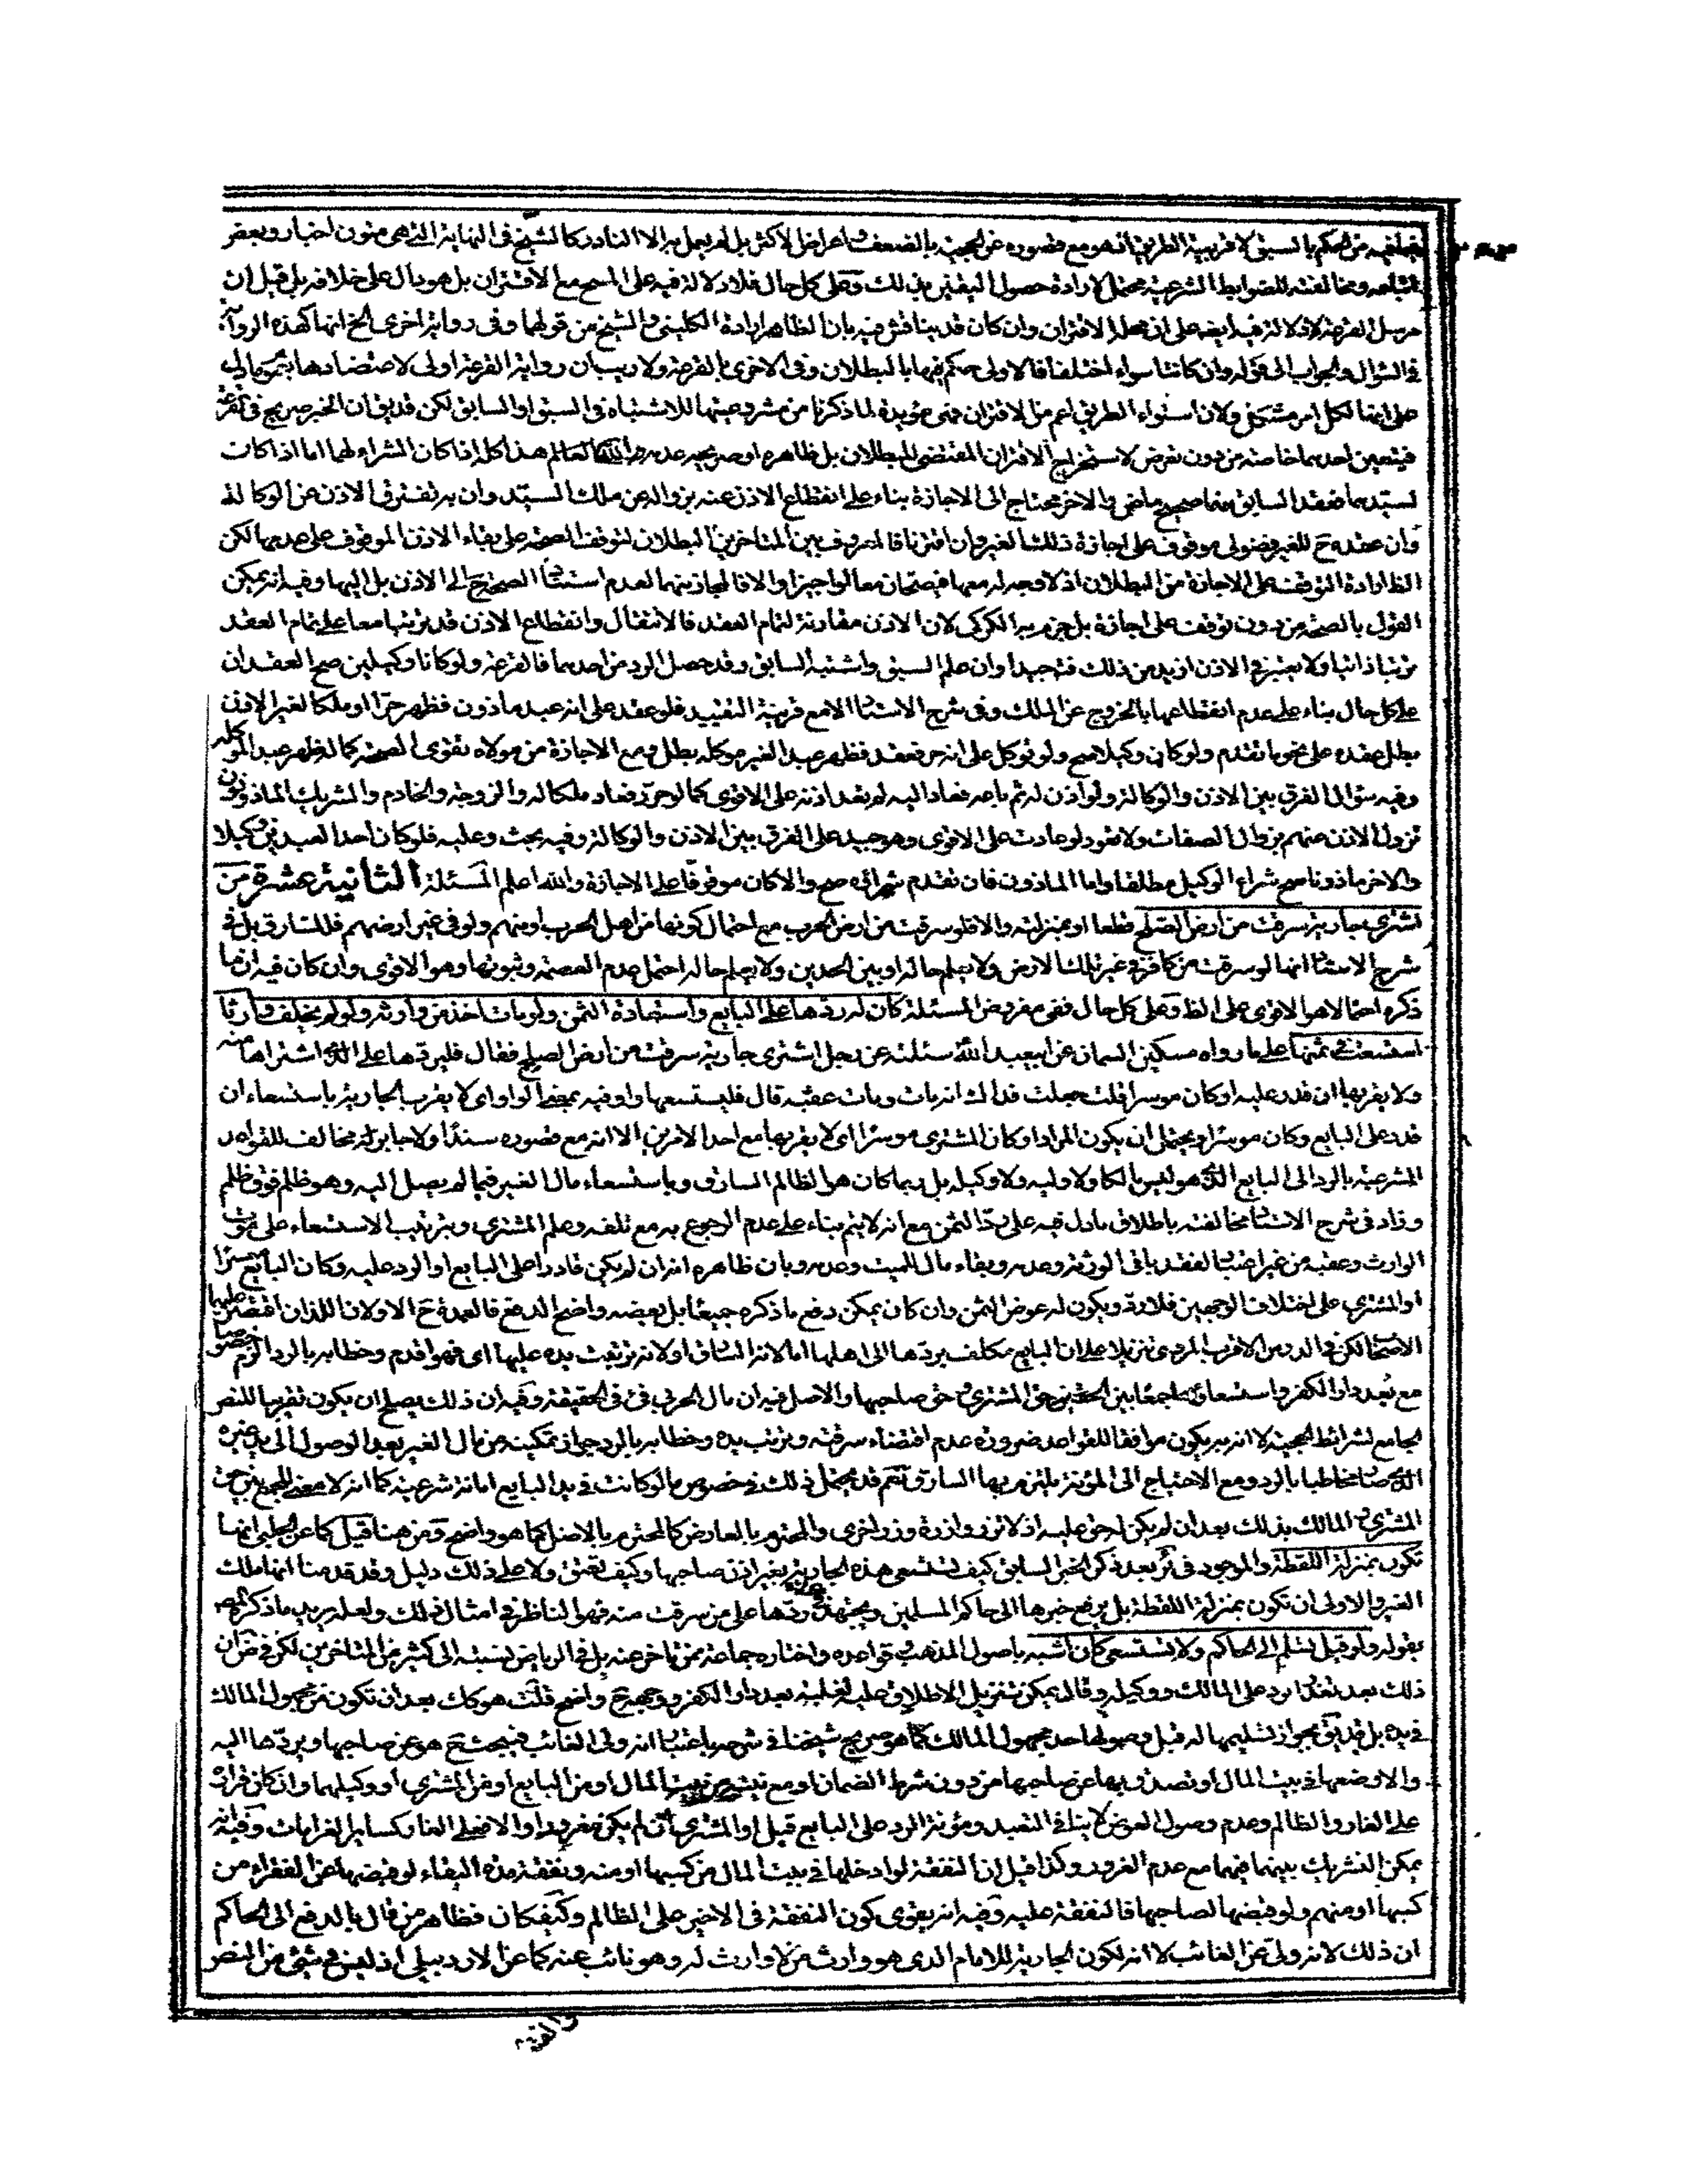 من الحكم بالسبق لاقربية الطريق انه هو مع قصوره عن الحجية بالضعف واعراض الاكثر بل لم يعمل به الا النادر كالشيخ فى النهاية التى هى متون اخبار وبعض
ومخالفته للضوابط الشرعية محتمل لارادة حصول اليقين بذلك وعلى كل حال فلا دلالة فيه على المسح مع الاقتران بل هو دال على خلافه بل قيل ان
مرسل القرعة لا دلالة فيه ايضا على ان محلها الاقتران وان كان قد يناقش فيه بان الظاهر ارادة الكلينى والشيخ من قولهما وفى رواية اخرى الخ انها كهذه الرواية
فى السؤال والجواب الى قوله وان كانتا سواء اختلفا فالاولى حكم فيها بالبطلان وفى الاخرى بالقرعة ولا ريب ان رواية القرعة اولى لاعتضادها
على انها لكل امر مشكل ولان استواء الطريق اعم من الاقتران فهى مؤيدة لما ذكرنا من مشروعيتها للاشتباه فى السبق او السابق لكن قد يق ان الخبر صريح فى
فيتعين احدهما خاصة من دون تعرض لاستخراج الاقتران المقتضى للبطلان بل ظاهره او صريحه عدمه والله العالم هذا كله اذا كان الشراء لهما اما اذا كان
لسيدهما فعقد السابق منهما صحيح ماض والاخر محتاج الى الاجازة بناء على انقطاع الاذن عنه بزواله عن ملك السيد وان به تفترق الاذن عن الوكالة
وان عقده ح للغير فضولى موقوف على اجازة ذلك الغير وان اقترنا فالمعروف بين المتاخرين البطلان لتوقف الصحة على بقاء الاذن الموقوف على عدمهما لكن
الظ ارادة التوقف على الاجازة من البطلان اذ لا وجه له معها فيصحان معا لو اجيزا والا فالمجاز منهما لعدم استناد الصحة ح الى الاذن بل اليها وفيه انه يمكن
القول بالصحة من دون توقف على اجازة بل جزم به الكركى لان الاذن مقارنة لتمام العقد فالانتقال وانقطاع الاذن قد ترتبا معا على تمام العقد
ترتبا ذاتيا ولا يعتبر فى الاذن ازيد من ذلك فتجيدا وان علم السبق واشتبه السابق وقد حصل الرد من احدهما فالقرعة ولو كانا وكيلين صح العقدان
على كل حال بناء على عدم انقطاعها بالخروج عن الملك وفى شرح الاستاد الا مع قرينة التقييد فلو عقد على انه عبد ماذون فظهر حرا او ملكا لغير الاذن
بطل عقده على نحو ما تقدم ولو كان وكيلا صح ولو توكل على انه حر فعقد فظهر عبد الغير موكله بطل ومع الاجازة من مولاه تقوى الصحة كما لو ظهر عبد الموكله
وفيه سؤال الفرق بين الاذن والوكالة ولو اذن له ثم باعه فعاد اليه لم يعد اذنه على الاقوى كما لو حرر فعاد ملكا له والزوجة والخادم والشريك الماذونون
تزول الاذن عنهم بزوال الصفات ولا تعود لو عادت على الاقوى وهو جيد على الفرق بين الاذن والوكالة وفيه بحث وعليه فلو كان احد العبدين وكيلا
والاخر ماذونا صح شراء الوكيل مطلقا واما الماذون فان تقدم شرائه صح والا كان موقوفا على الاجازة والله اعلم المسئلة الثانية عشرة من
اشترى جارية سرقت من ارض الصلح قطعا او بمنزلته والا فلو سرقت من ارض الحرب مع احتمال كونها من اهل الحرب او منهم ولو فى غير ارضهم فللسارق بل فى
شرح الاستاد انها لو سرقت من كافر فى غير تلك الارض ولا يعلم حاله او بين الحدين ولا يعلم حاله احتمل عدم العصمة وثبوتها وهو الاقوى وان كان فيه ان ما
ذكره احتمالا هو الاقوى على الظ وعلى كل حال ففى مفروض المسئلة كان له ردها على البايع واستعادة الثمن ولو مات اخذ من وارثه ولو لم يخلف وارثا
استسعت فى ثمنها على ما رواه مسكين السمان عن ابيعبد الله سئلته عن رجل اشترى جارية سرقت من ارض الصلح فقال فليردها على الذى اشتراها منه
ولا يقربها ان قدر عليه او كان موسرا قلت جعلت فداك انه مات ومات عقبه قال فليستسعها واو فيه بمعنى الواو اى لا يقرب الجارية باستسعاء ان
قدر على البايع وكان موسرا ويحتمل ان يكون المراد او كان المشترى موسرا اى لا يقربها مع احد الامرين الا انه مع قصوره سندا ولا جابر له مخالف للقواعد
الشرعية بالرد الى البايع الذى هو ليس مالكا ولا وليه ولا وكيله بل ربما كان هو الظالم السارق وباستسعاء مال الغير فيما لم يصل اليه وهو ظلم فوق ظلم
وزاد فى شرح الاستاد مخالفته باطلاق ما دل فيه على رد الثمن مع انه لا يتم بناء على عدم الرجوع به مع تلفه وعلم المشترى وبترتيب الاستسعاء على موت
الوارث وعقبه من غير اعتبار لفقد باقى الورثة وعدمه وبقاء مال للميت وعدمه وبان ظاهره انه ان لم يكن قادرا على البايع او الرد عليه وكان البايع معسرا
او المشترى على اختلاف الوجهين فلا رد ويكون له عوض الثمن وان كان يمكن دفع ما ذكره جميعا بل بعضه واضح الدفع فالعمدة ح الاولان اللذان اقتصر عليهما
الاصحاب لكن فى الدروس الاقرب المروى تنزيلا على ان البايع مكلف بردها الى اهلها اما لانه السارق او لانه ترتبت يده عليها اى فهو اقدم وخطابه بالرد الزم خصوصا
مع بعد دار الكفر واستسعاؤها جمعا بين الحقين حق المشترى وحق صاحبها والاصل فيه ان مال الحربى فئ فى الحقيقة وفيه ان ذلك يصلح ان يكون تقريبا للنص
الجامع لشرائط الحجية لا انه به يكون موافقا للقواعد ضرورة عدم اقتضاء سرقته وترتب يده وخطابه بالرد جواز تمكينه من مال الغير بعد الوصول الى يد غيره
الذى صار مخاطبا بالرد ومع الاحتياج الى المؤنة يلتزم بها السارق نعم قد يحتمل ذلك فى خصوص ما لو كانت فى يد البايع امانة شرعية كما انه لا معنى للجمع بين حق
المشترى والمالك بذلك بعد ان لم يكن له حق عليه اذ لا تزر وازرة وزر اخرى والمحترم بالعارض كالمحترم بالاصل كما هو واضح ومن هنا قيل كما عن الحلى انها
تكون بمنزلة اللقطة والموجود فى ئر بعد ذكر الخبر السابق كيف تستسعى هذه الجارية بغير اذن صاحبها وكيف تعتق ولا على ذلك دليل وقد قدمنا انها ملك
الغير والاولى ان تكون بمنزلة اللقطة بل يرفع خبرها الى حاكم المسلمين ويجتهد فى ردها على من سرقت منه فهو الناظر فى امثال ذلك ولعله يريد ما ذكره المصنف
بقوله ولو قيل تسلم الى الحاكم ولا تستسعى كان اشبه باصول المذهب وقواعده واختاره جماعة ممن تاخر عنه بل فى الرياض نسبته الى كثير من المتاخرين لكن فى ضة ان
ذلك بعد تعذر الرد على المالك ووكيله وقال يمكن تنزيل الاطلاق عليه لغلبة بعد دار الكفر ووجهه ح واضح قلت هو كك بعد ان تكون من مجهول المالك
فى يده بل قد يق بجواز تسليمها له قبل وصولها حد مجهول المالك كما هو صريح شيخنا فى شرحه باعتبار انه ولى الغائب فيبحث ح هو عن صاحبها ويردها اليه
والا وضعها فى بيت المال او تصدق بها عن صاحبها من دون شرط الضمان او مع ... المال او من البايع او من المشترى او وكيلهما وان كان قراره
على الغار والظالم وعدم وصول العوض لا ينافى التقييد ومؤنة الرد على البايع قيل او المشترى ان لم يكن مغرورا والا فعلى الغار كسائر الغرامات وفيه انه
يمكن التشريك بينهما فيها مع عدم الغرور وكذا قيل ان النفقة لو ادخلها فى بيت المال من كسبها او منه ونفقة مدة البقاء لو قبضها عن الفقراء من
كسبها او منهم ولو قبضها لصاحبها فالنفقة عليه وفيه انه يقوى كون النفقة فى الاخير على الظالم وكيف كان فظاهر من قال بالدفع الى الحاكم
ان ذلك لانه ولى عن الغائب لا انه لكون الجارية للامام الذى هو وارث من لا وارث له وهو نائب عنه كما عن الاردبيلى اذ ليس فى شئ من النص
والفتوى